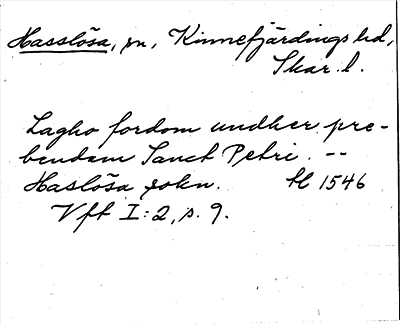 Hasslösa, sn, Kinnefjärdings hd,
Skar. l.
Lagho fordom undher pre-
bendam Sanct Petri. --
Haslösa sokn. H 1546
Vft I:2, s. 9.